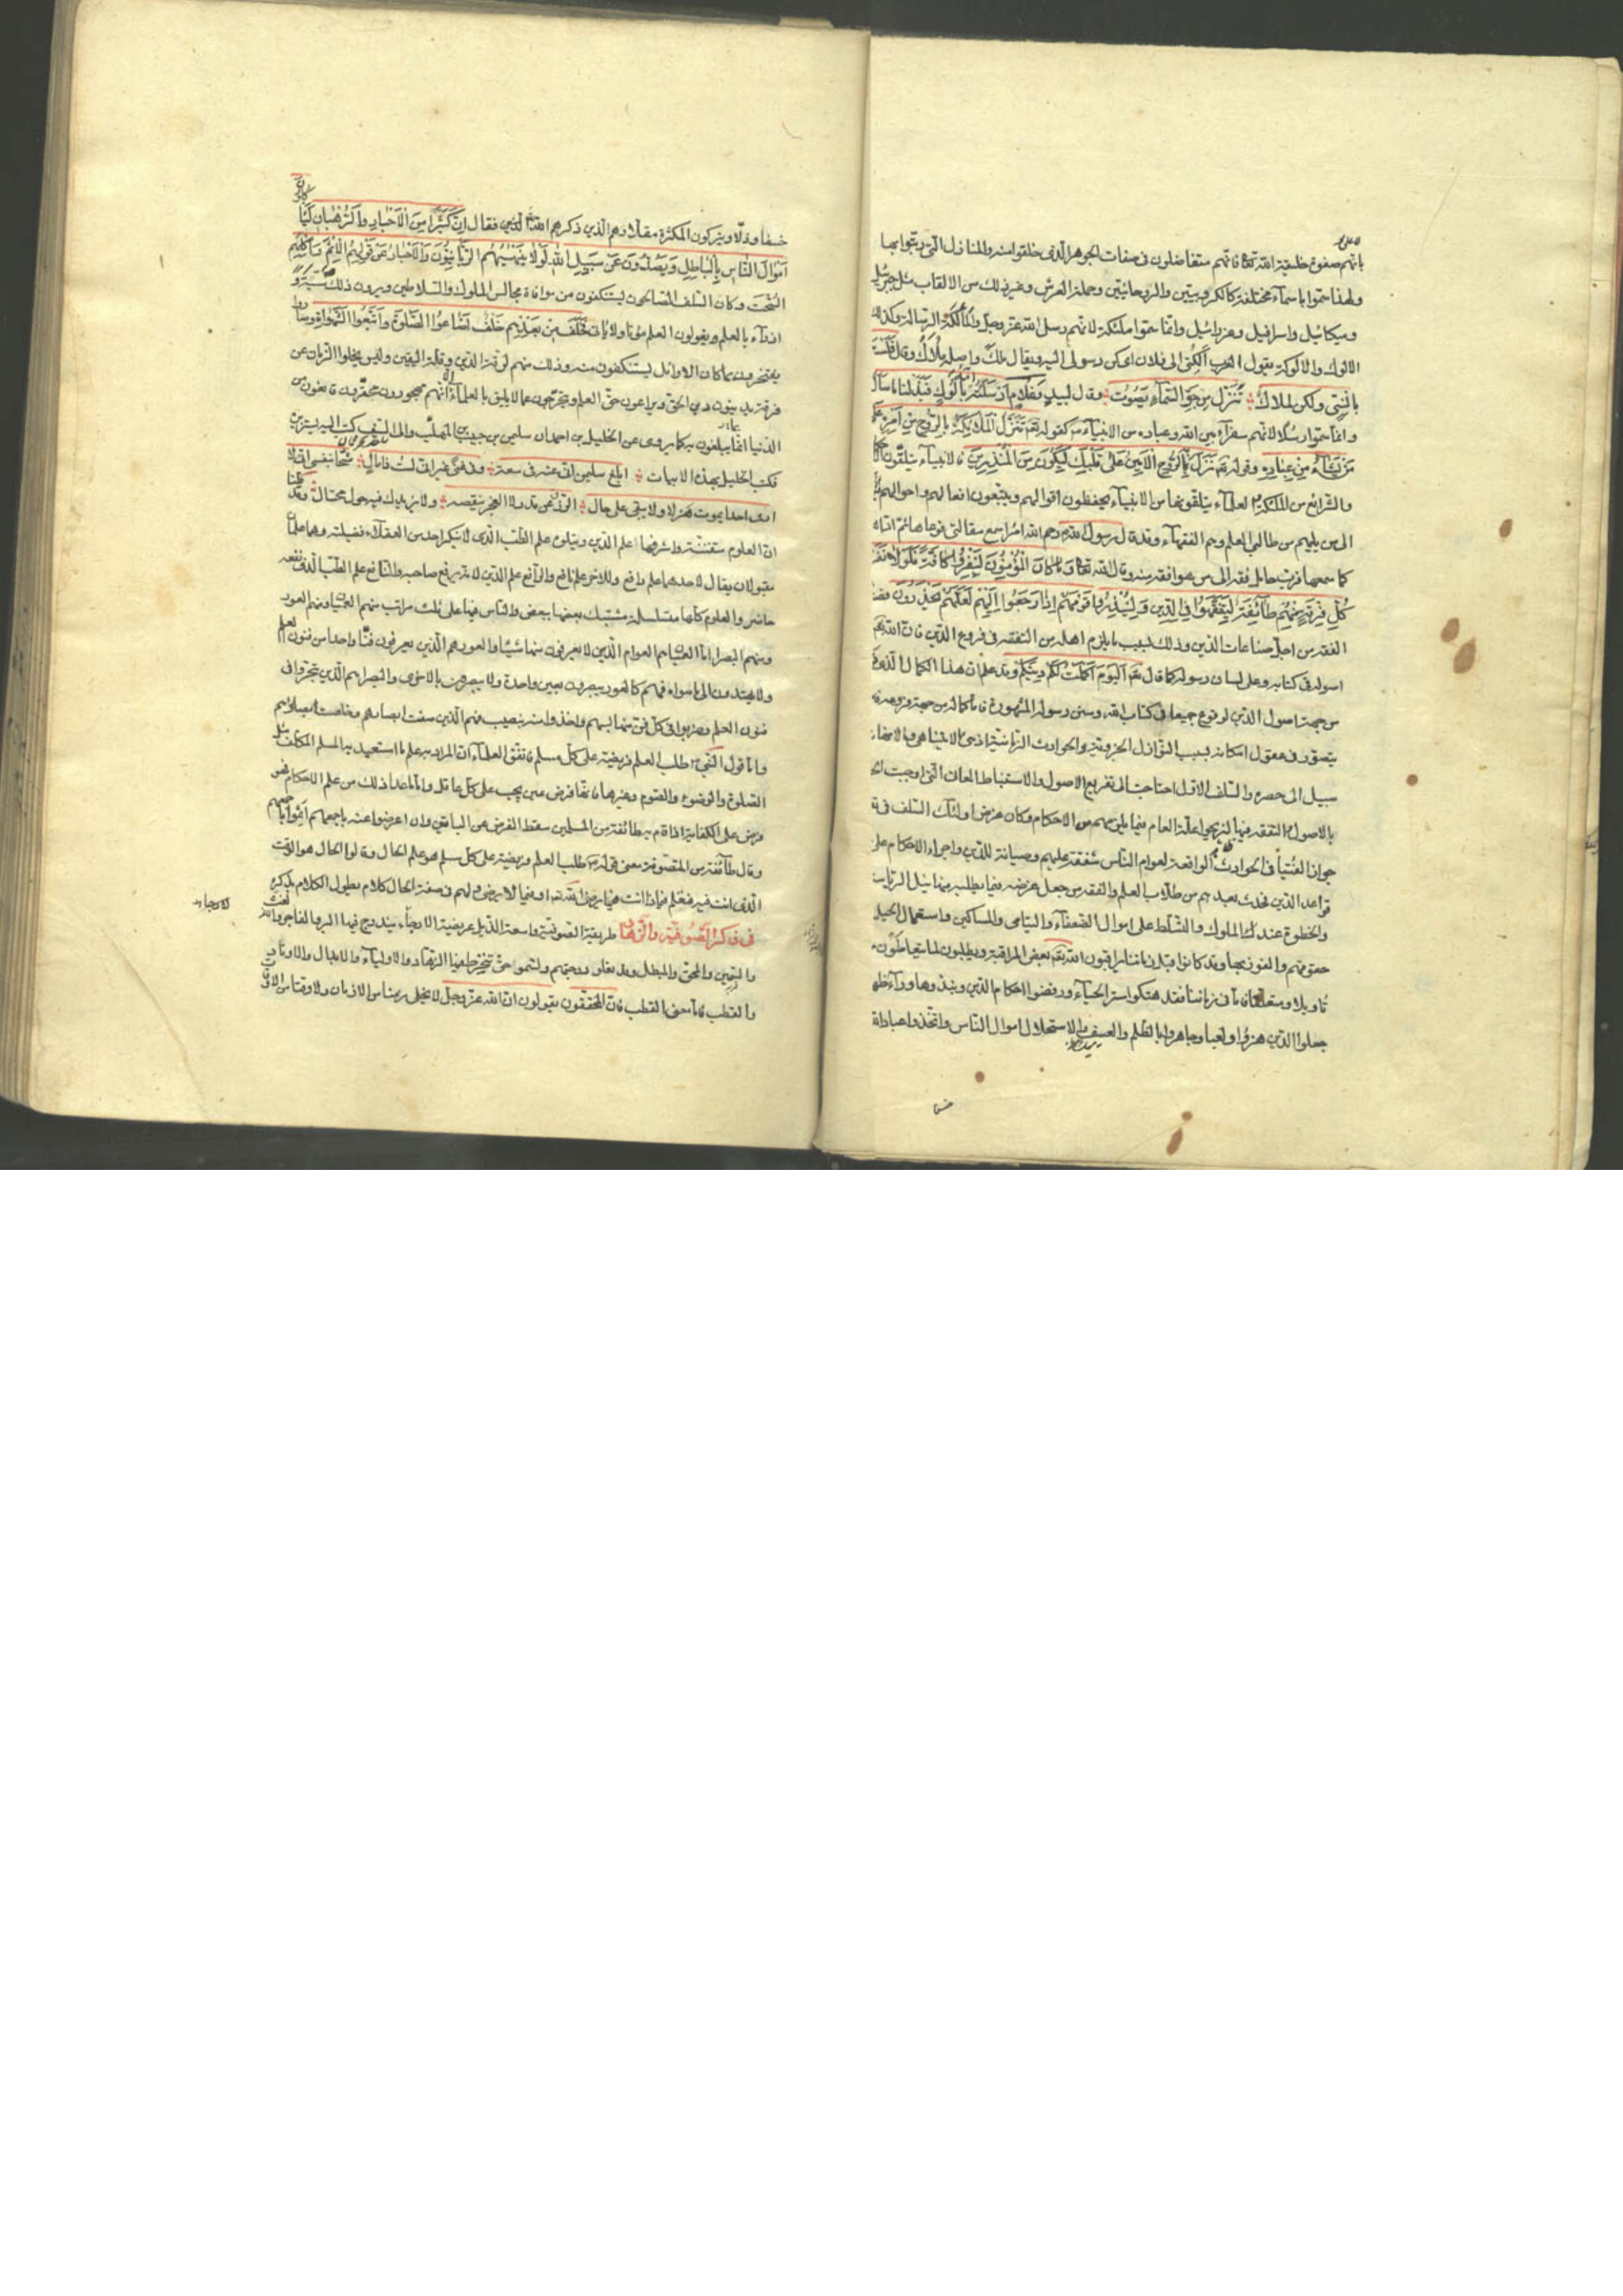 بانهم صفوة خليقة الله تعالى فانهم متفاضلون في صفات الجوهر الذي خلقوا منه والمنازل التي رتبوا بها
ولهذا سموا باسماء مختلفة كالكروبيين والروحانيين وحملة العرش وغير ذلك من الالقاب مثل جبرئيل
وميكائيل واسرافيل وعزرائيل وانما سموا ملئكة لانهم رسل الله عز وجل والمألكة الرسالة وكذلك
الالوك والالوكة يقول العرب الكني الى فلان اى كن رسولى اليه ويقال ملك واصله ملاك وقال فلست
بانسي ولكن لملاك تنزل من جو السماء يصوب وقال لبيد وغلام ارسلته امه بالوك فبذلنا ما سأل
وانما سموا رسلا لانهم سفراء بين الله وعباده من الانبياء كقوله تنزل الملئكة بالروح من امره على
من يشاء من عباده وقوله نزل به الروح الامين على قلبك ليكون من المنذرين فالانبياء يتلقون
والشرائع من الملئكة العلماء يتلقونها من الانبياء يحفظون اقوالهم ويتبعون افعالهم واحوالهم
الى من يليهم من طالبي العلم وهم الفقهاء وقد قال رسول الله رحم الله امرا سمع مقالتى فوعاها ثم اداها
كما سمعها فرب حامل فقه الى من هو افقه منه وقال الله تعالى وما كان المؤمنون لينفروا كافة فلولا نفر
كل فرقة منهم طائفة ليتفقهوا في الدين ولينذروا قومهم اذا رجعوا اليهم لعلهم يحذرون
الفقه من اجل صناعات الدين وذلك لسبب ما يلزم اهله من التفقه في فروع الدين فان الله
اصوله في كتابه وعلى لسان رسوله كما قال اليوم اكملت لكم دينكم وقد علم ان هذا الكمال الذي
من جهة اصول الدين لوقوع جميعها في كتاب الله وسنن رسوله المشهورة فاما كماله من جهة فروعه
يتصور في معقول امكانه بسبب النوازل الجزوية والحوادث الزمانية
سبيل الى حصره والسلف الاول احتاجت الى تفريع الاصول والاستنباط المعان التى اوجبت
بالاصول التفقه فيها ليزيحوا علة العام فيما يلزمهم من الاحكام وكان غرض اولئك السلف في
جواز الفتيا في الحوادث الواقعة لعوام الناس شفقة عليهم وصيانة للدين واجراء الاحكام على
قواعد الدين فحدث بعدهم من طلاب العلم والفقه من جعل غرضه فيما يطلبه منها نيل الرياسة
والخطوة عند الملوك والتسلط على اموال الضعفاء واليتامى والمساكين واستعمال الحيل
حقوقهم والفوز بها وقد كانوا قبل زماننا يراقبون الله بعض المراقبة ويطلبون لما يتعاطون
تاويلا ومتعلقا فاما في زماننا فقد هتكوا استر الحياء ورفضوا احكام الدين ونبذوها وراء ظهر
جعلوا الدين هزوا ولعبا وجاهروا بالظلم والعسف والاستحلال اموال الناس واتخذوا عباد الله
خسفا وذلا ويتركون المكثرة مقلا وهم الذين ذكرهم الله فقال ان كثيرا من الاحبار والرهبان لياكلون
اموال الناس بالباطل ويصدون عن سبيل الله لولا ينهيهم الربانيون والاحبار عن قولهم الاثم واكلهم
السحت وكان السلف الصالحون يستنكفون من موافاة مجالس الملوك والسلاطين ويرون ذلك
ازراء بالعلم ويقولون العلم يؤتى ولا يأت فخلف من بعدهم خلف اضاعوا الصلوة واتبعوا الشهوات وصاروا
يفتخرون بما كان الاوائل يستنكفون منه وذلك منهم لرقة الدين وقلة اليقين وليس يخلوا الزمان عن
فرقة يدينون دين الحق ويراعون حق العلم ويتحرجون عما لا يليق بالعلماء الا انهم مهجورون محقرون قانعون من
الدنيا بما يبلغون به كما يروى عن الخليل بن احمد ان سليمن بن حبيب بن المهلب والى السند كتب اليه يستزيره
فكتب الخليل بهذه الابيات ابلغ سليمن انى عنه في سعة وفي غنى غير انى لست ذا مال شحا بنفسى انى لا
ارى احدا يموت هزلا ولا يبقى على حال الرزق عن قدر لا العجز ينقصه ولا يزيدك فيه حول محتال وقد قلنا
ان العلوم متفننة واشرفها علم الدين ويتلوه علم الطب الذى لا ينكر احد من العقلاء فضيلته وهما علمان
مقبولان يقال لاحدهما علم دافع وللاخر علم نافع والرافع علم الدين لانه يرفع صاحبه والنافع علم الطب الذى نفعه
حاضر والعلوم كلها متسلسلة مشتبك بعضها ببعض والناس فيها على ثلث مراتب منهم العميان ومنهم العور
ومنهم البصراء اما العميان هم العوام الذين لا يعرفون منها شيئا والعور هم الذين يعرفون فنا واحدا من فنون العلم
ولا يهتدون الى ما سواه فهم كالعور يبصرون بعين واحدة ولا يبصرون بالاخرى والبصراء هم الذين تبحروا في
فنون العلم وضربوا في كل فن منها بسهم واخذوا منه بنصيب
واما قول النبي طلب العلم فريضة على كل مسلم فاتفق العلماء ان المراد به علم ما استعبد به المسلم المكلف مثل
الصلوة والوضوء والصوم وغيرها فانها فرض عين يجب على كل عاقل واما ما عدا ذلك من علم الاحكام فهو
فرض على الكفاية اذا قام به طائفة من المسلمين سقط الفرض عن الباقين وان اعرضوا عنه باجمعهم اثموا باجمعهم
وقال طائفة من المتصوفة معنى قوله طلب العلم فريضة على كل مسلم هو علم الحال وقالوا الحال هو الوقت
الذى انت فيه فتعلم فيماذا انت فيما يرضى الله او فيما لا يرضى ولهم في صفة الحال كلام يطول الكلام بذكره
في ذكر الصوفية والزهاد طريقة الصوفية واسعة الذيل عريضة الارجاء يندرج فيها البر والفاجر
والمحق والمبطل
والقطب فاما معنى القطب فان المحققون يقولون ان الله عز وجل لا يخلى
الارجاء